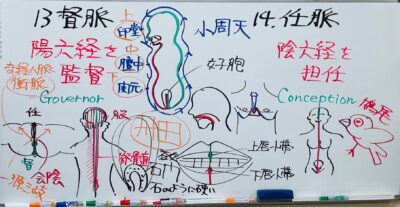 13 督脈
陽六経を
監督
奇経八脈
衝脈
Governor
上
印堂
中
膻中
下
関元
小周天
女子胞
14. 任脈
陰六経を
担任
Conception
任
督
会陰
丹田
石のように硬い
上唇小帯
下唇小帯